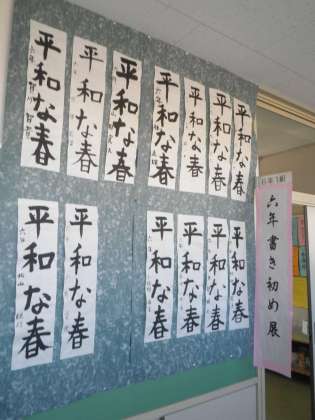 平和な春
六年
平和な春
平和な春
平和な春
六年
平和な春
平和な春
平和な春
平和な春
六年
平和な春
平和な春
平和な春
平和な春
平和な春
6年1組
六年書き初め展